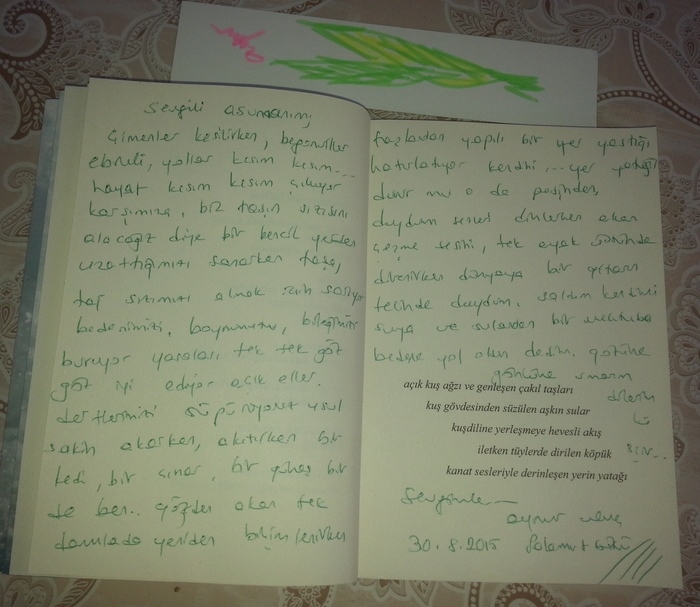 Sevgili asumanım,
Çimenler kesilirken, begonviller
ebruli, yollar kısım kısım...
hayat kısım kısım çıkıyor
karşımıza, biz taşın sızısını
alacağız diye bir bencil yerden
uzattığımızı sanarken taşa,
taş sızımızı almak için sarıyor
bedenimizi, boynumuzu, bileğimizi
buruyor yaraları tek tek göz
göz iyi ediyor açık eller.
dertlerimizi süpürüyorut usul
sakin akarken, akıtırken bir
kedi, bir çınar, bir güneş bir
de ben.. gözden akan tek
damlada yeniden biçimlenirken
fazladan yapılı bir yer yastığı
hatırlatıyor kendini... yer yatağı
durur mu o da peşinden,
duydum sesini dinlerken akan
çeşme sesini, tek ayak üstünde
direnirken dünyaya bir gitarın
telinde duydum. saldım kendimi
suya ve sulardan bir mektuba
bedene yol alan dedim.
gönlüne
dilerim
açık kuş ağzı ve genleşen çakıl taşları
kuş gövdesinden süzülen aşkın sular
kuşdiline yerleşmeye hevesli akış
iletken tüylerde dirilen köpük
kanat sesleriyle derinleşen yerin yatağı
Sevgimle
aynur uluç
30.8.2015